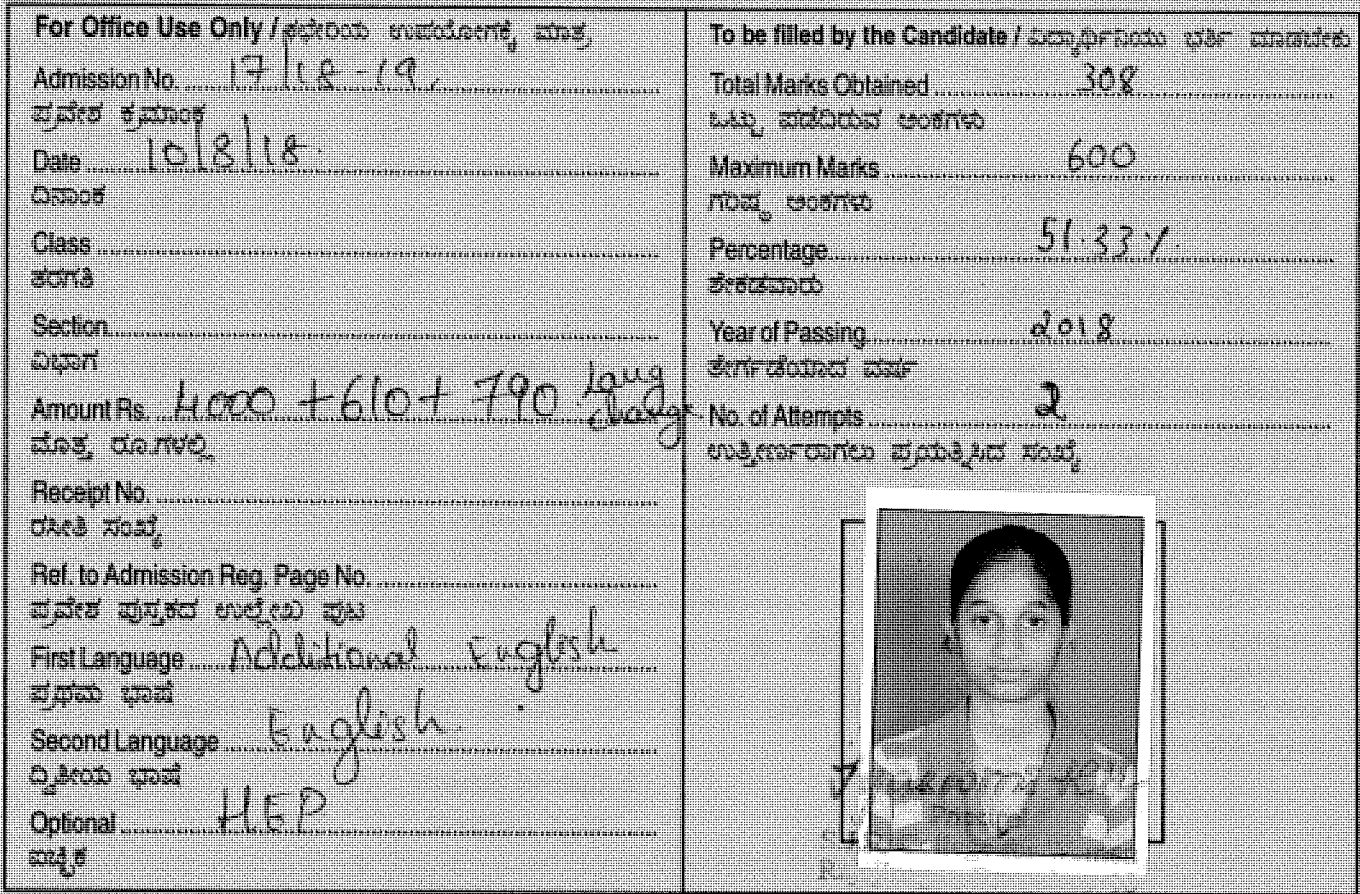 For Office Use Only / ಕಛೇರಿಯ ಉಪಯೋಗಕ್ಕೆ ಮಾತ್ರ
Admission No. 17/18-19,
ಪ್ರವೇಶ ಕ್ರಮಾಂಕ
Date 10/8/18.
ದಿನಾಂಕ
Class
ತರಗತಿ
Section
ವಿಭಾಗ
Amount Rs. 4000 + 610 + 790 Lang change
ಮೊತ್ತ ರೂ.ಗಳಲ್ಲಿ
Receipt No.
ರಸೀತಿ ಸಂಖ್ಯೆ
Ref. to Admission Reg. Page No.
ಪ್ರವೇಶ ಪುಸ್ತಕದ ಉಲ್ಲೇಖ ಪುಟ
First Language Additional English
ಪ್ರಥಮ ಭಾಷೆ
Second Language English.
ದ್ವಿತೀಯ ಭಾಷೆ
Optional HEP
ಐಚ್ಛಿಕ
To be filled by the Candidate / ವಿದ್ಯಾರ್ಥಿನಿಯು ಭರ್ತಿ ಮಾಡಬೇಕು
Total Marks Obtained 308
ಒಟ್ಟು ಪಡೆದಿರುವ ಅಂಕಗಳು
Maximum Marks 600
ಗರಿಷ್ಠ ಅಂಕಗಳು
Percentage 51.33%
ಶೇಕಡವಾರು
Year of Passing 2018
ತೇರ್ಗಡೆಯಾದ ವರ್ಷ
No. of Attempts 2
ಉತ್ತೀರ್ಣರಾಗಲು ಪ್ರಯತ್ನಿಸಿದ ಸಂಖ್ಯೆ